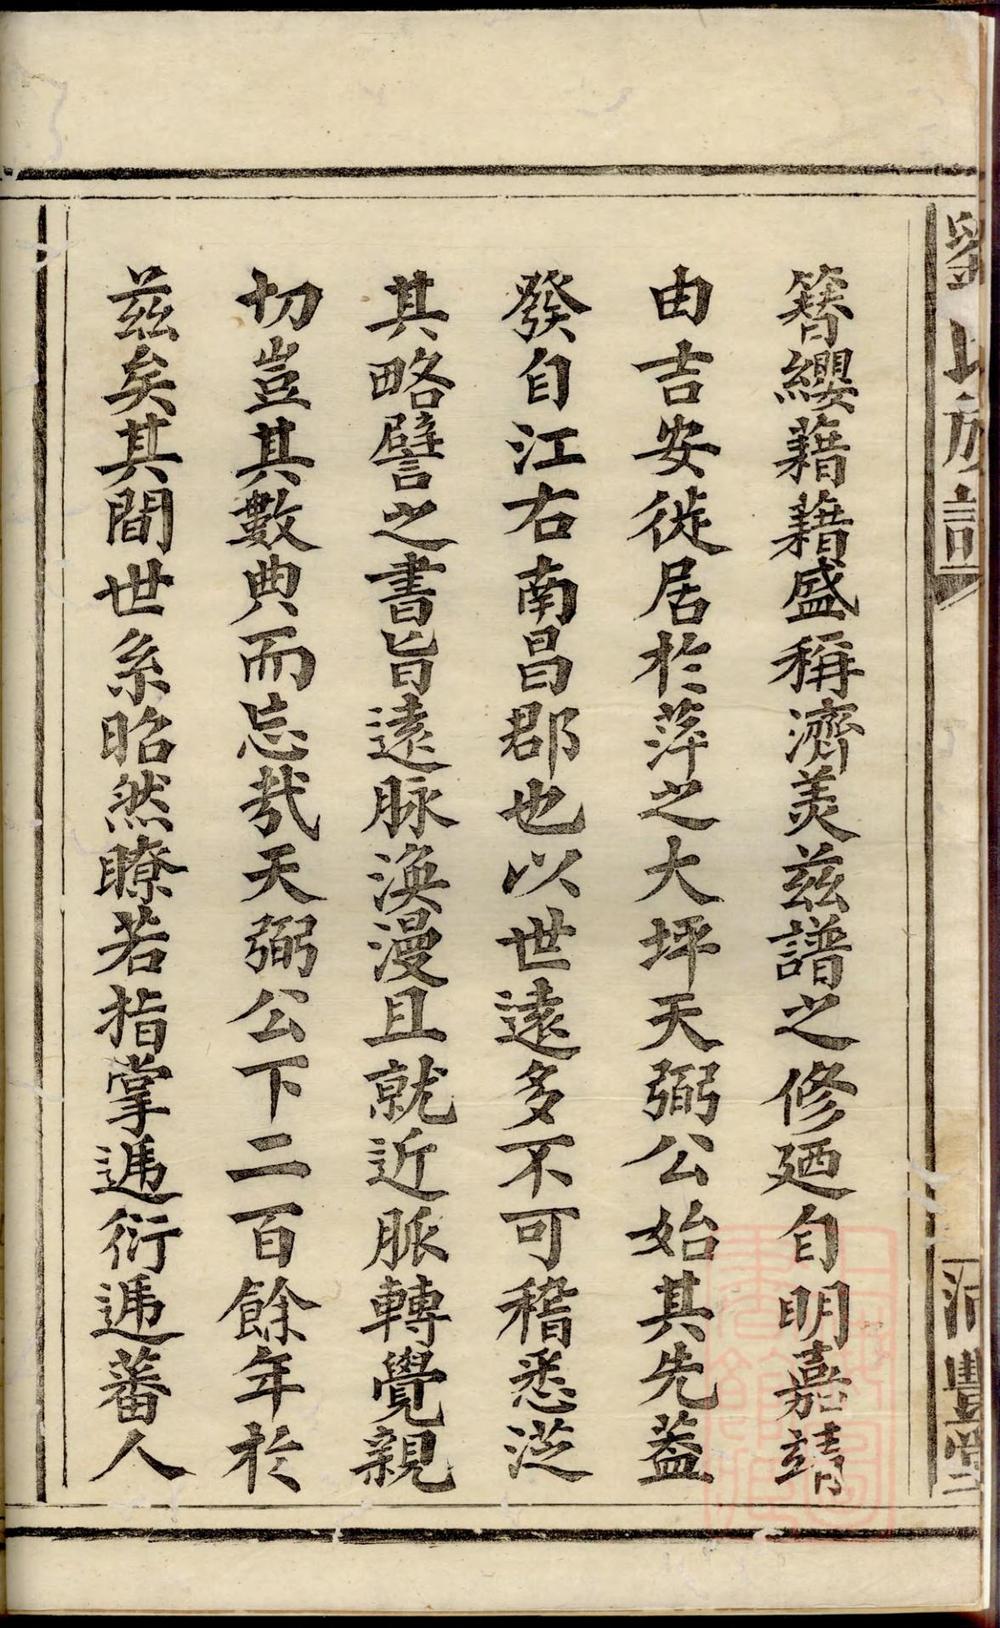 簪纓藉藉盛稱濟美茲譜之修廼自明嘉靖
由吉安徙居於萍之大坪天弼公始其先葢
發自江右南昌郡也以世遠多不可稽悉泛
其略譬之書旨遠脉渙漫且就近脈轉覺親
切豈其數典而忘哉天弼公下二百餘年於
茲矣其間世系昭然瞭若指掌遞衍遞蕃人
劉氏族譜
沛豐堂